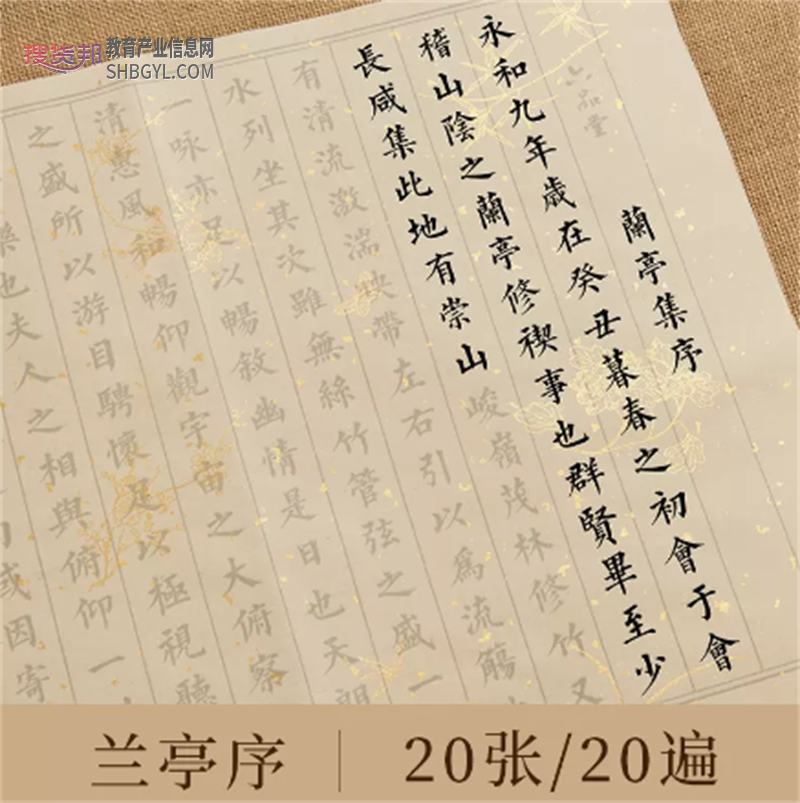 搜货邦
教育产业信息网
SHBGYL.COM
六品堂
蘭亭集序
永和九年歲在癸丑暮春之初會于會
稽山陰之蘭亭修禊事也群賢畢至少
長咸集此地有崇山峻嶺茂林修竹又
有清流激湍映帶左右引以爲流觴
水列坐其次雖無絲竹管弦之盛一
一詠亦足以暢敘幽情是日也天朗
清惠風和暢仰觀宇宙之大俯察
之盛所以游目騁懷足以極視聽
樂也夫人之相與俯仰一
或因寄
兰亭序
20张/20遍